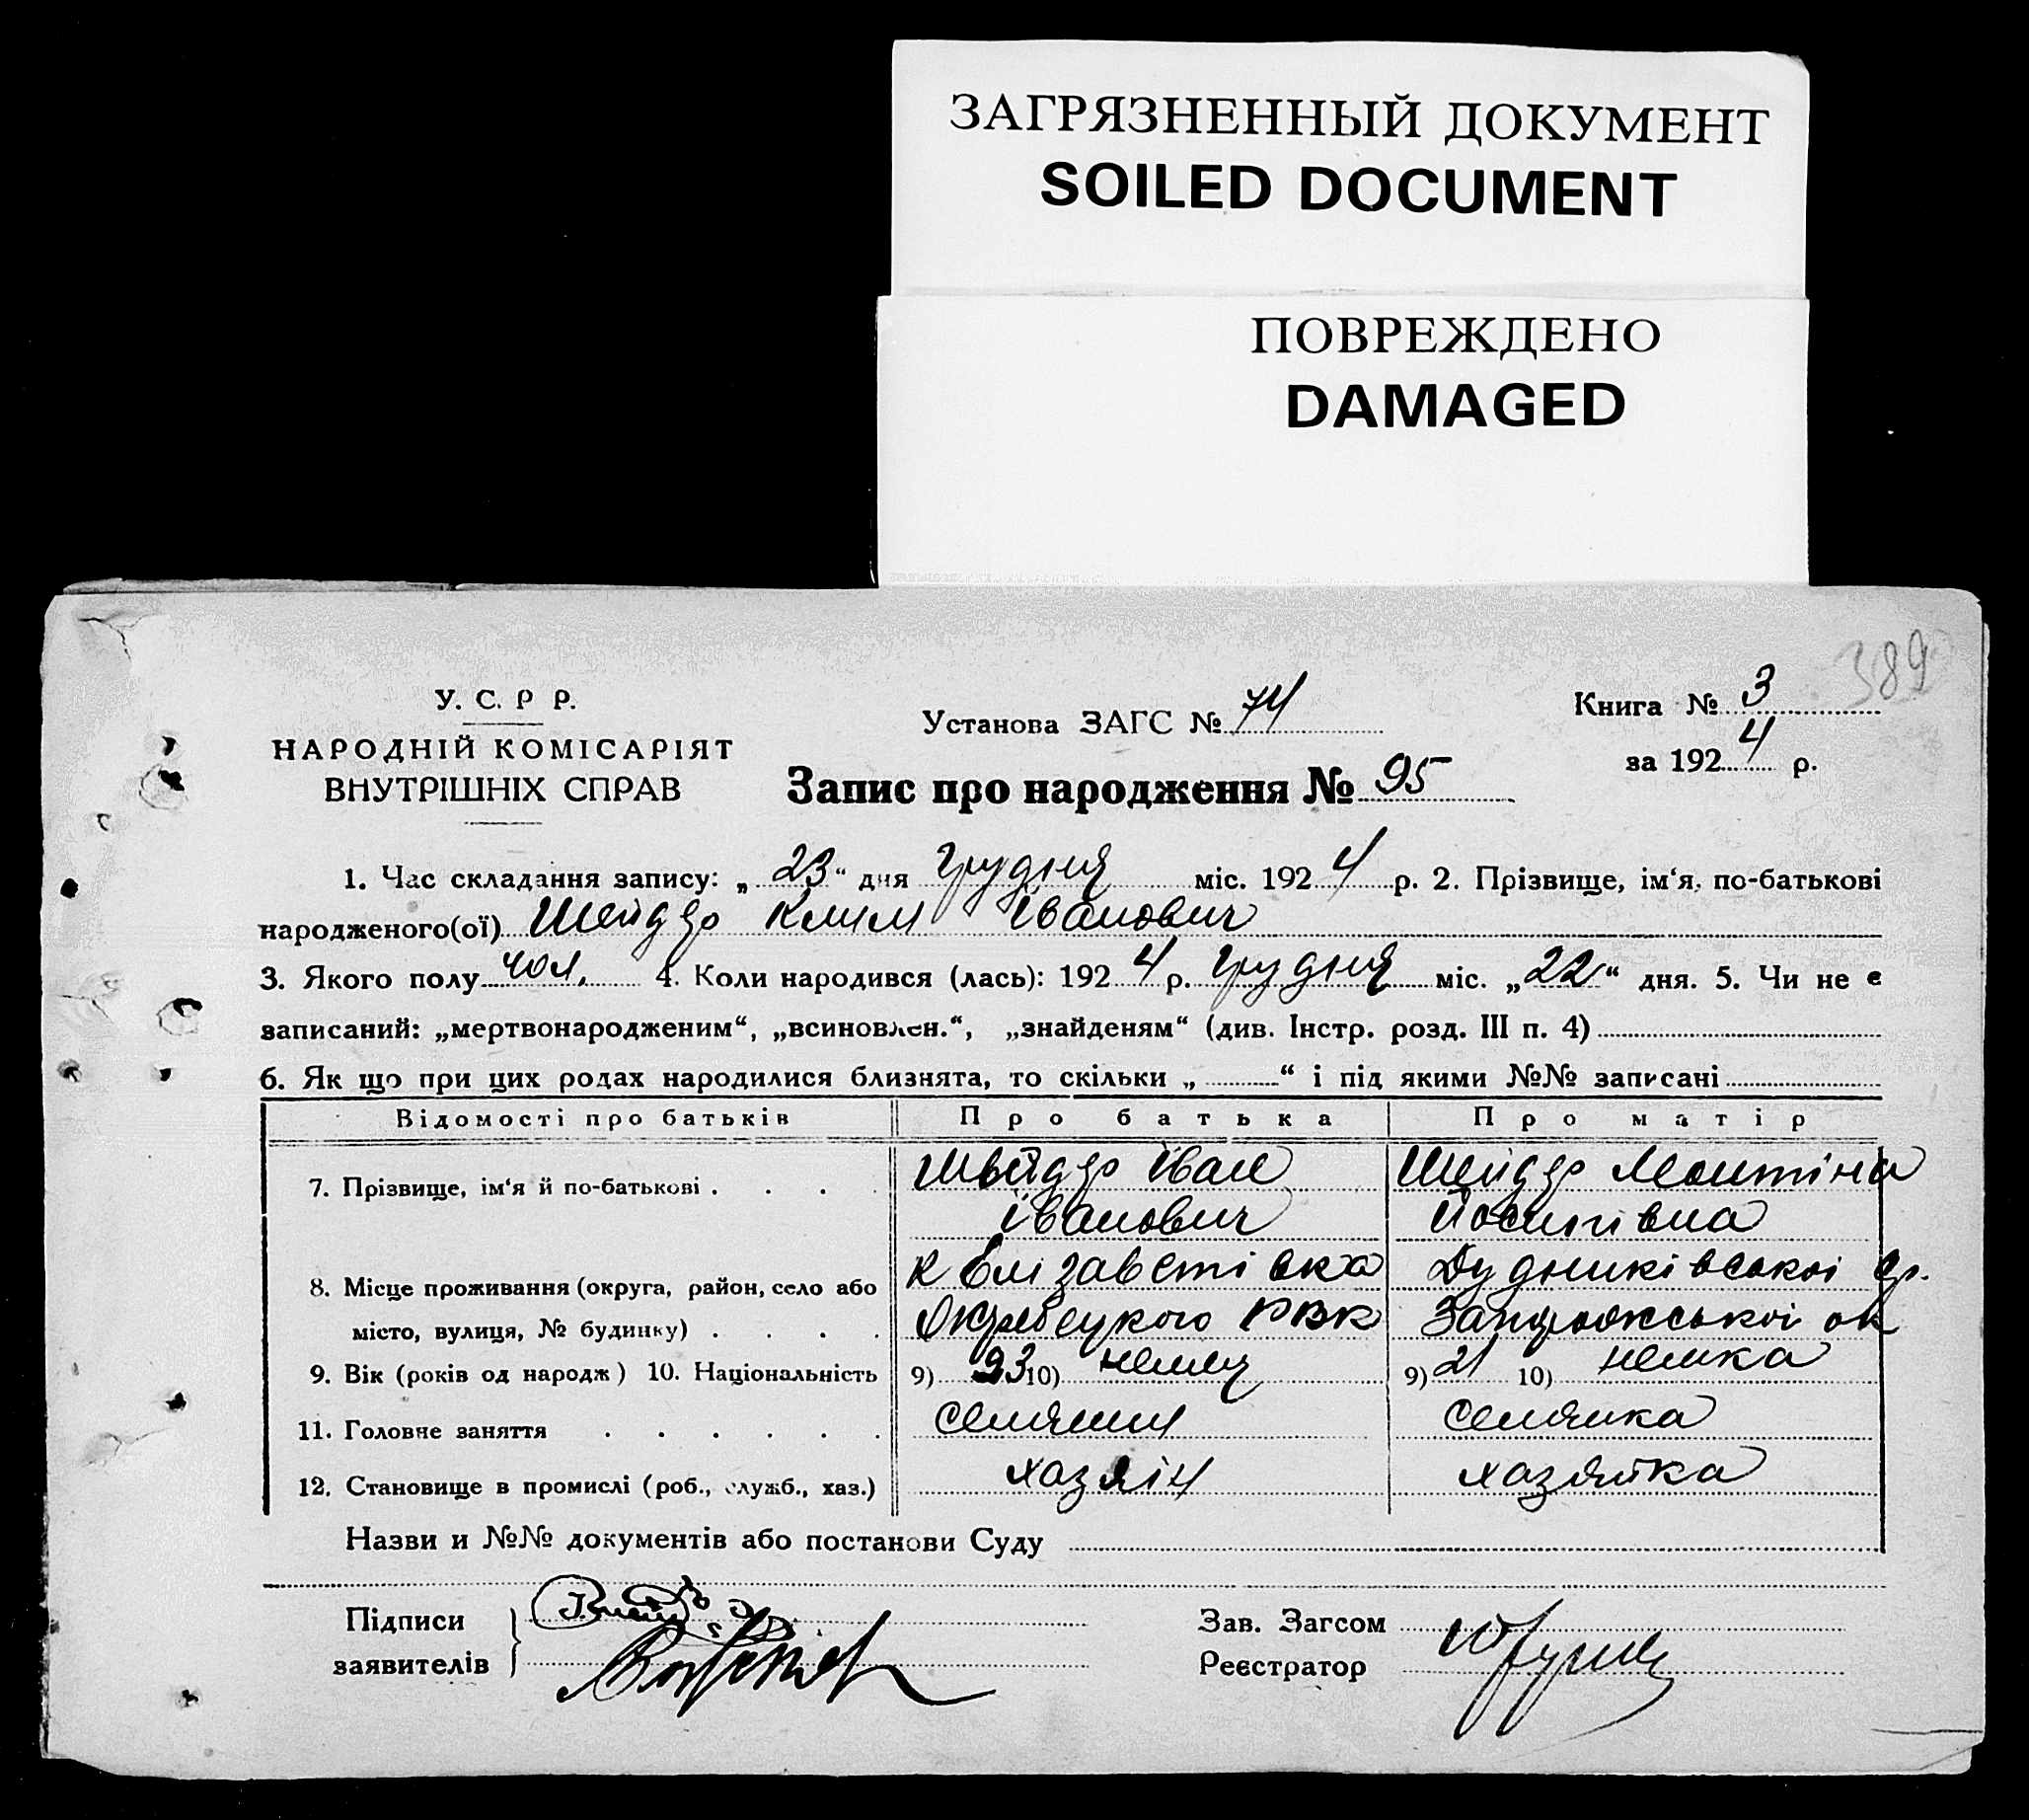 ЗАГРЯЗНЕННЫЙ ДОКУМЕНТ
SOILED DOCUMENT
ПОВРЕЖДЕНО
DAMAGED
389
У. С. Р Р.
НАРОДНІЙ КОМІСАРІЯТ
ВНУТРІШНІХ СПРАВ
Установа ЗАГС № 74
Книга № 3
за 1924 р.
Запис про народження № 95
1. Час складання запису: „23“ дня грудня міс. 1924 р. 2. Прізвище, ім‘я, по-батькові
народженого(ої) Шейдер Клим Іванович
3. Якого полу чол. 4. Коли народився (лась): 1924 р. грудня міс. „22“ дня. 5. Чи не є
записаний: „мертвонародженим“, „всиновлен.“, „знайденям“ (див. Інстр. розд. III п. 4)
6. Як що при цих родах народилися близнята, то скільки „ “ і під якими №№ записані
Відомості про батьків Про батька Про матір
7. Прізвище, ім‘я й по-батькові . . . . Шейдер Іван Шейдер
Іванович Йосипівна
8. Місце проживання (округа, район, село або к Єлізаветівка
місто, вулиця, № будинку) . . . . РВК Запорожської ок
9. Вік (років од народж) 10. Національність 9) 23 10) немец 9) 21 10) немка
11. Головне заняття . . . . . . селянин селянка
12. Становище в промислі (роб., служб., хаз.) хазяін хазяйка
Назви и №№ документів або постанови Суду
Підписи
заявителів
Зав. Загсом
Реєстратор